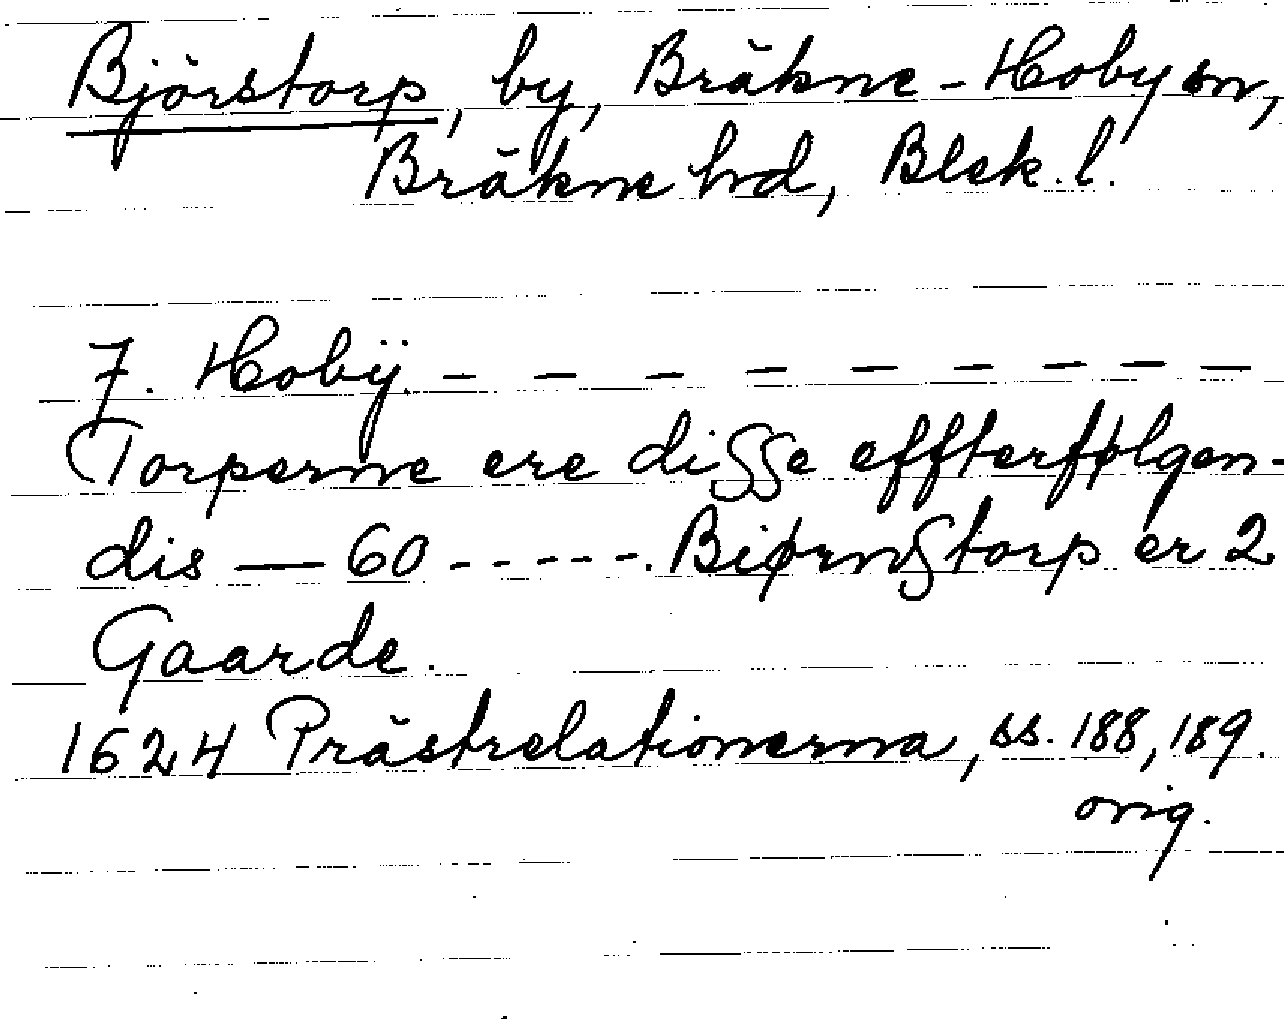 Björstorp, by, Bräkne-Hoby sn,
Bräkne hd, Blek. l.
7. Hobÿ. – – – – – – – – –
Torperne ere disse effterfølgen-
dis — 60 - - - - - . Biørnstorp er 2
Gaarde.
1624 Prästrelationerna, ss. 188, 189.
orig.